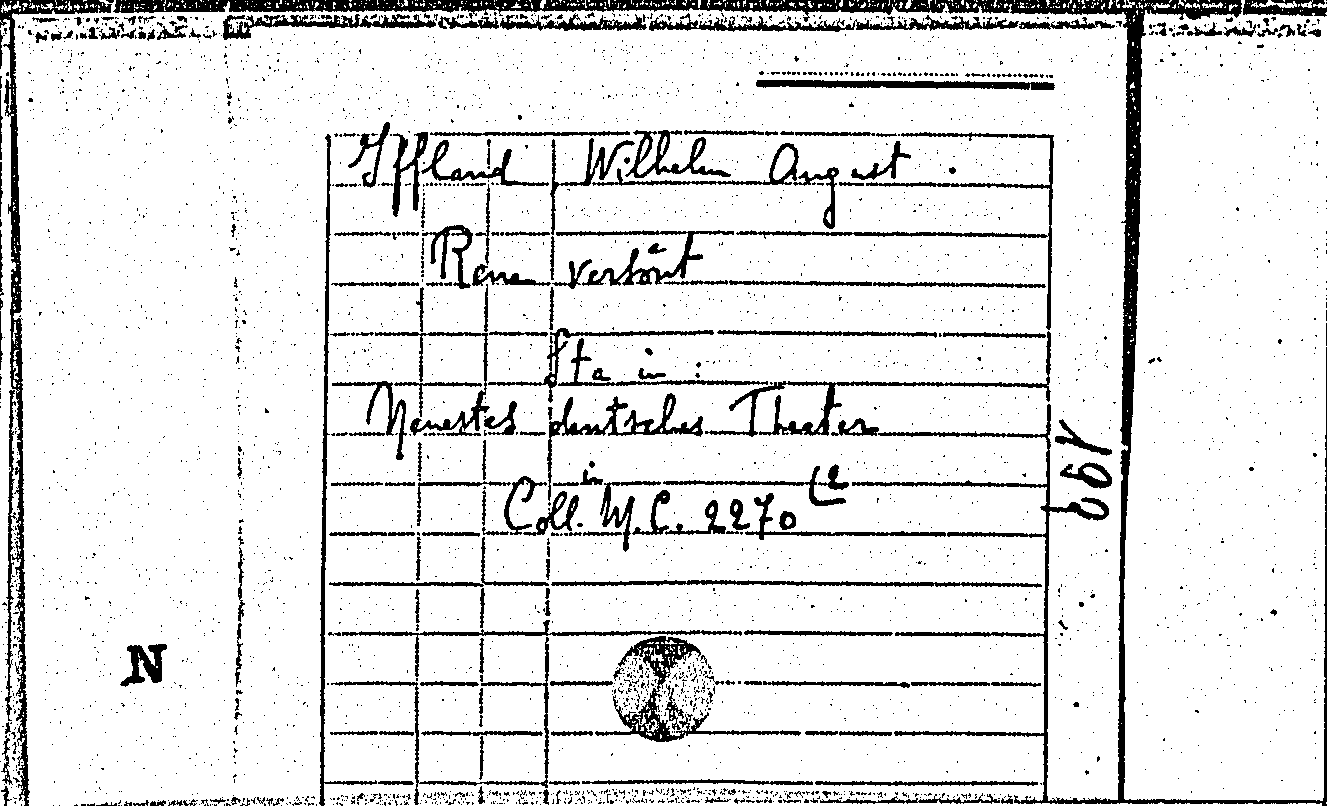 Iffland, Wilhelm August.
Reue versönt
Sta in:
Neuestes deutsches Theater
in
Coll. M.C. 2270 (2
N